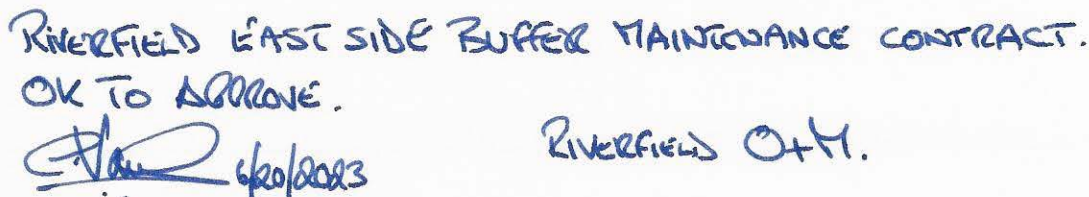 RIVERFIELD EAST SIDE BUFFER MAINTENANCE CONTRACT.
OK TO APPROVE.
6/20/2023
RIVERFIELD O+M.